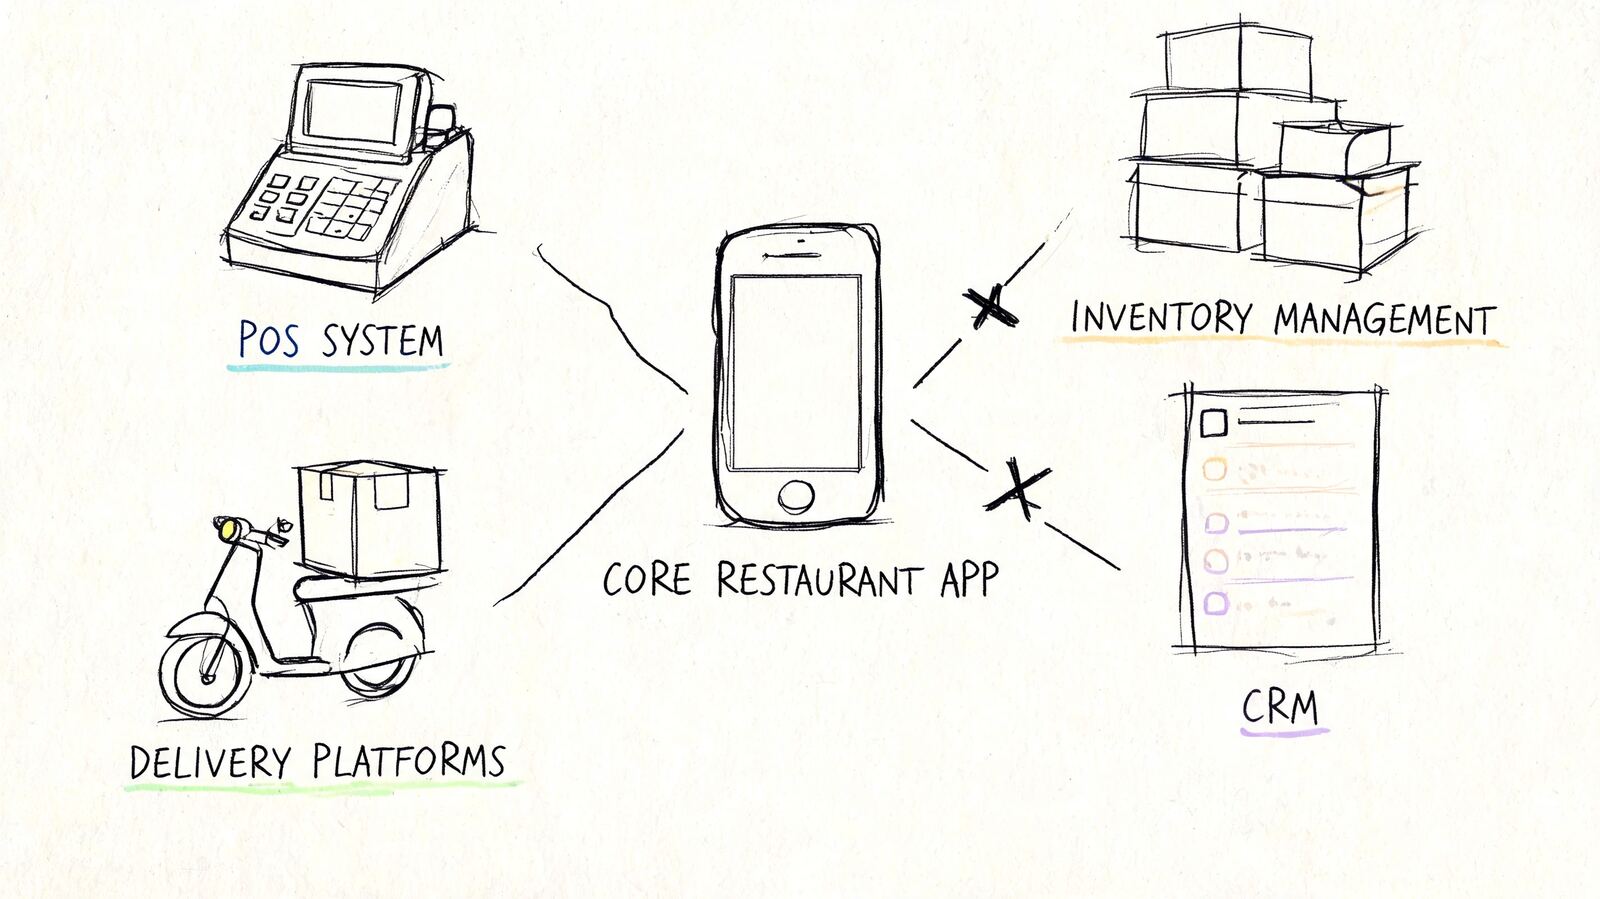 POS SYSTEM
INVENTORY MANAGEMENT
CORE RESTAURANT APP
CRM
DELIVERY PLATFORMS